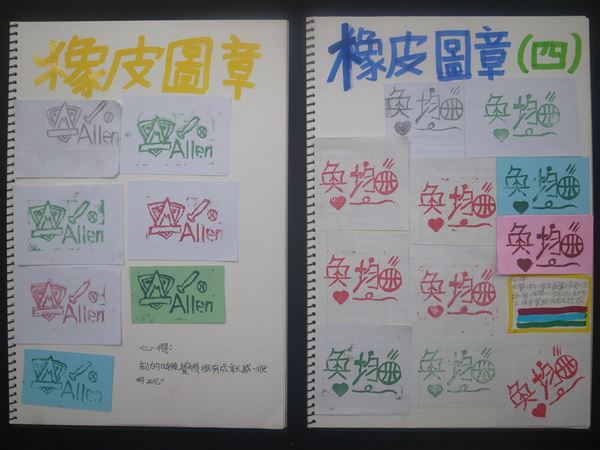 橡皮圖章
Allen
Allen
Allen
Allen
Allen
Allen
Allen
心得:
刻的時候覺得很有成就感,很
好玩!
橡皮圖章(四)
奐均
奐均
奐均
奐均
奐均
奐均
奐均
奐均
奐均
奐均
奐均